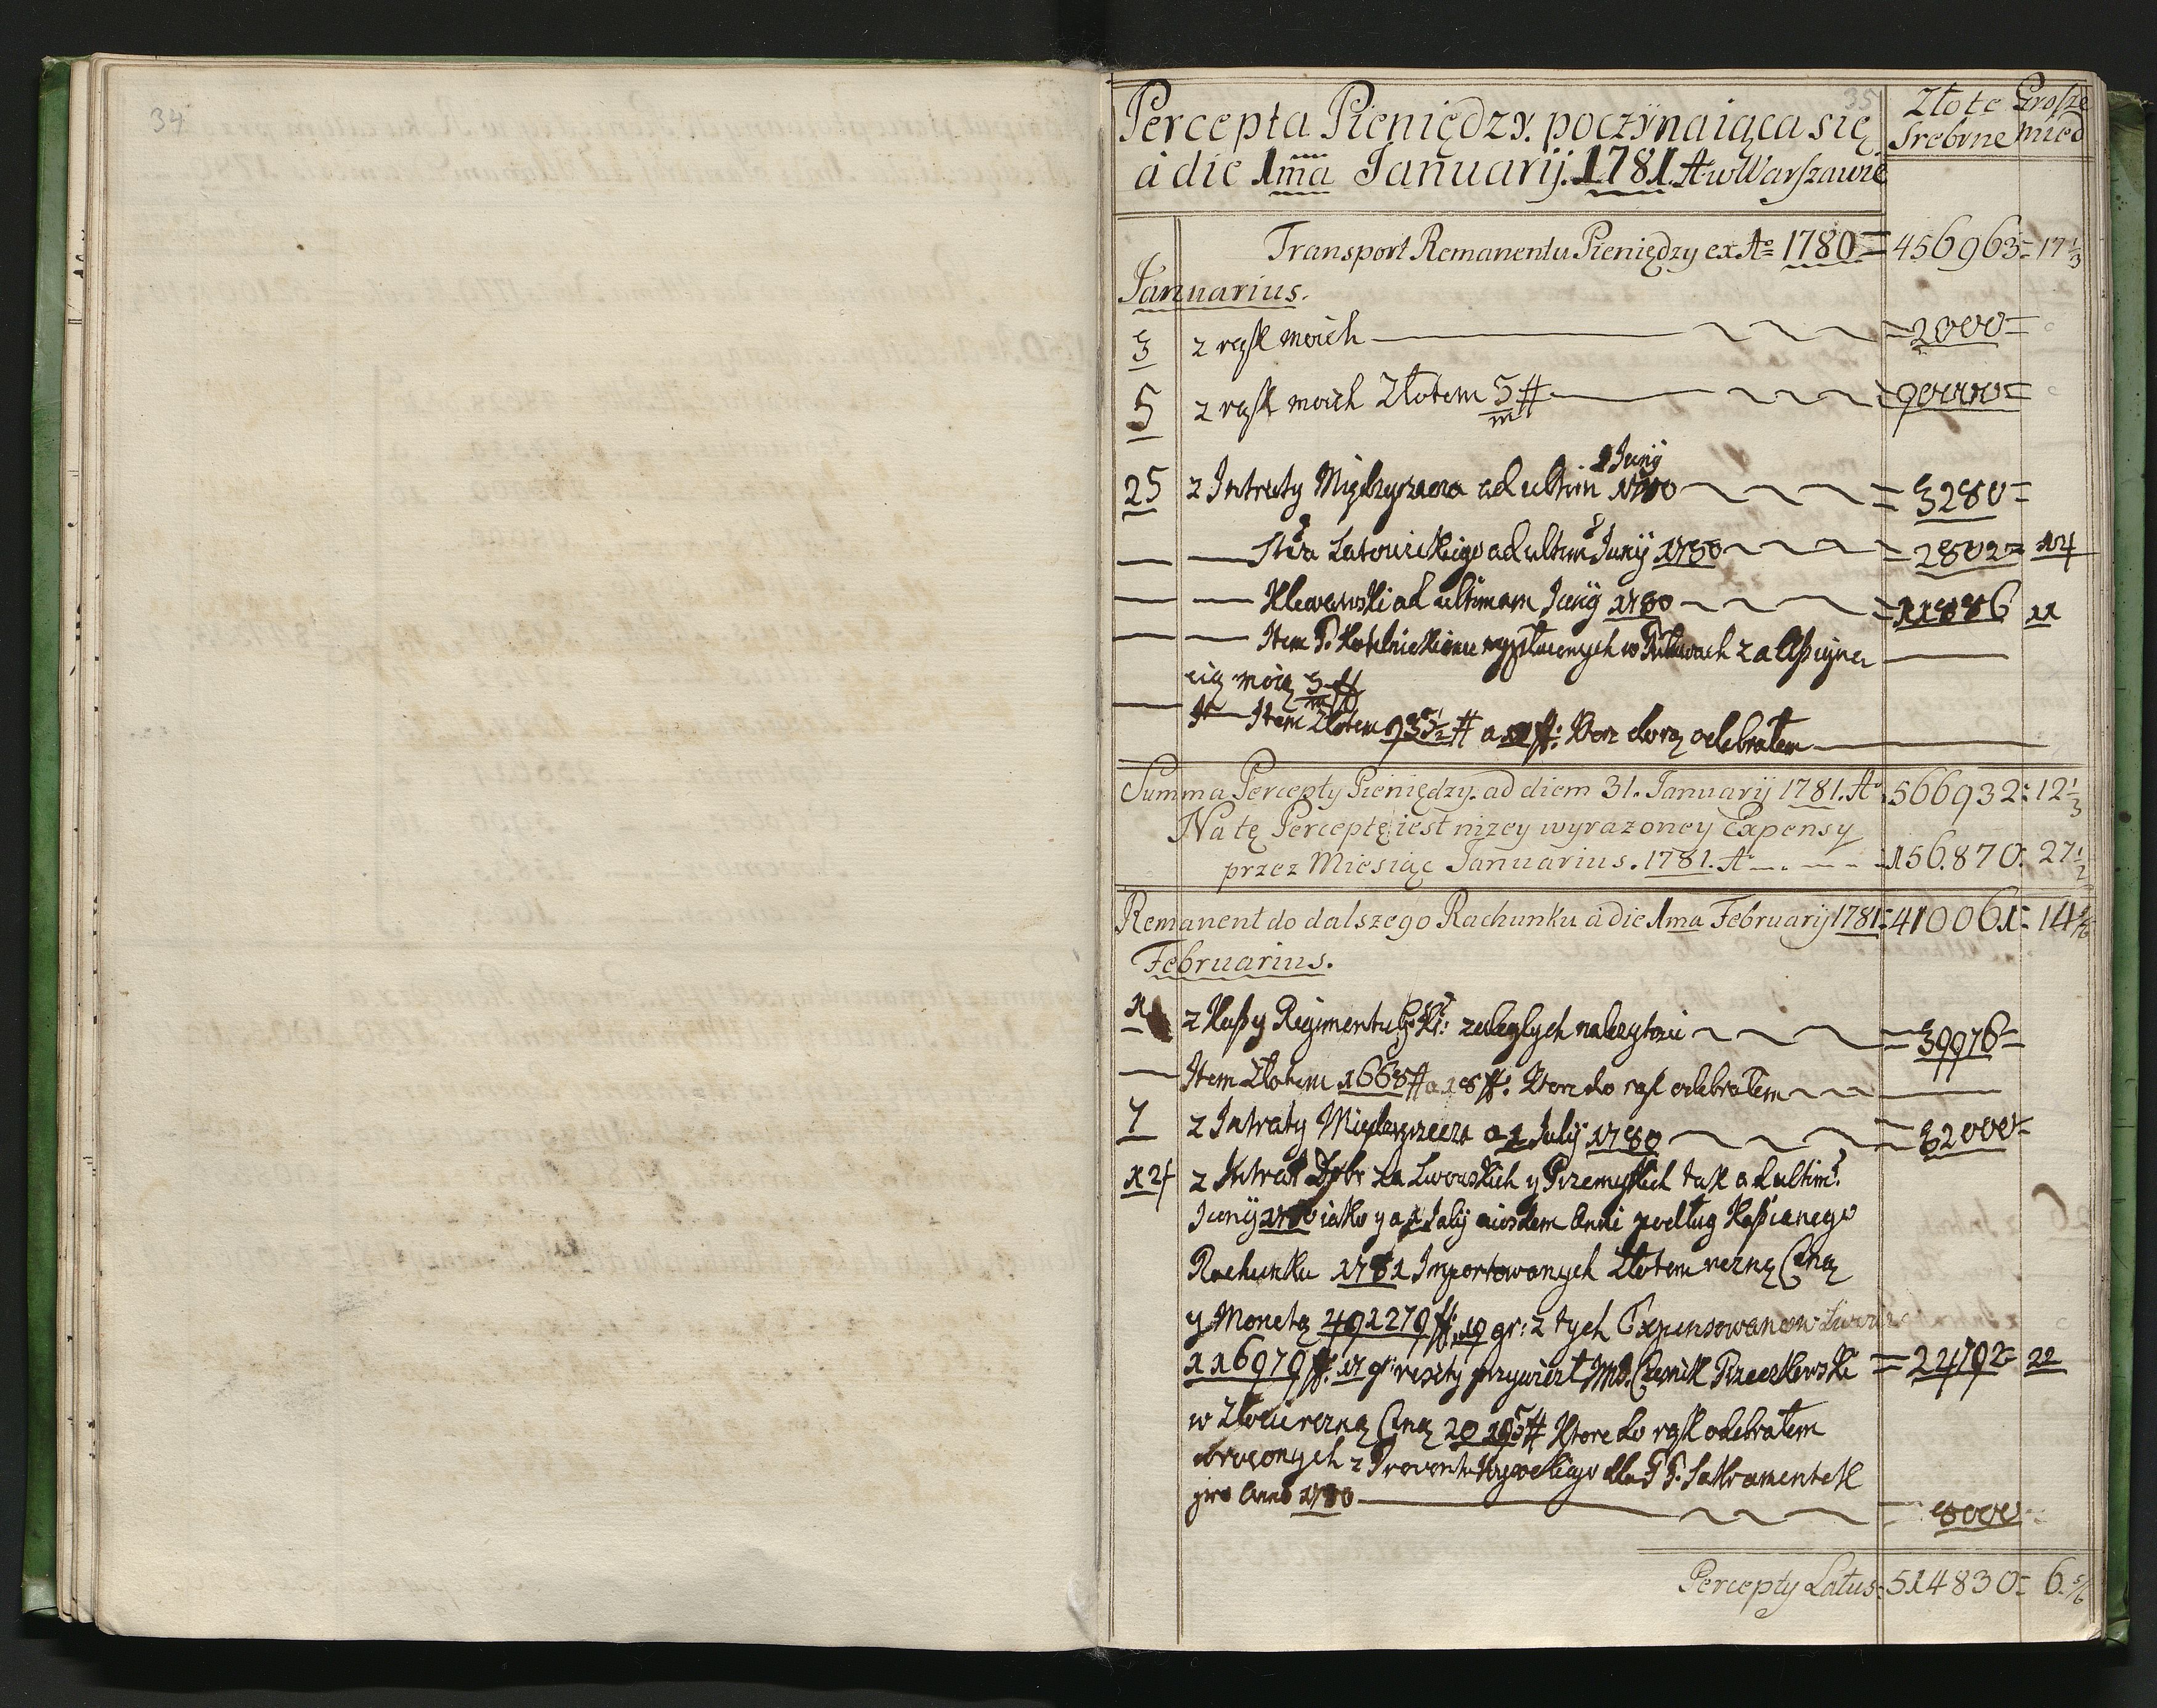 34
35
Percepta Pieniędzy. poczynaiąca się
à die 1ma Januarij. 1781. A. w Warszawie
Złote Grosze
Srebrne mied
Transport Remanentu Pieniędzy ex Ao 1780 = 456963 = 17 1/3
Januarius.
3 z rąk moich = 2000 =
5 z rąk moich Złotem 5 m # = 90000 =
25 z Intraty Międzyrzecza ad ultim Junij 1780 = 3280 =
Latowickiego ad ultim Junij 1780 = 2802 = 14
Klewanski ad ultimam Junij 1780 = 11886 11
Item P. wypłaconych w Puławach za
cią moią 3 m
Item Złotem # a ff: odebrałem
Summa Percepty Pieniędzy. ad diem 31. Januarij 1781. Ao. 566932: 12 1/3
Na tę Perceptę iest niżey wyrazoney Expensy
przez Miesiąc Januarius. 1781. A 156.870: 27 1/2
Remanent do dalszego Rachunku à die 1ma Februarij 1781 = 410061 = 14 5/6
Februarius.
1 z Kassy Regimentu zaległych = 39976 =
Item Złotem 1668 # a 18 ff: Ktore do rąk odebrałem
7 z Intraty Międzyrzecza a 1 Julij 1780 = 32000 =
12 z Intrat Dobr za Lwowskich y Przemyskich tak ad ultim
Junij 1780 iako y a 1 Julij eiusdem Anni podług Kassianego
Rachunku 1781 Importowanych Złotem rczną Ceną
y Monetą 491279 ff. 19 gr: z tych Expensowano w
116979 ff: 17 gr reszty przywiozł Czesnik = 24792 22
w Złocie rczną Ceną # Ktore do rąk odebrałem
wroconych z dla PP. Sakramentek
pro Anno 1780 = 8000
Percepty Latus = 514830 = 6. 5/6